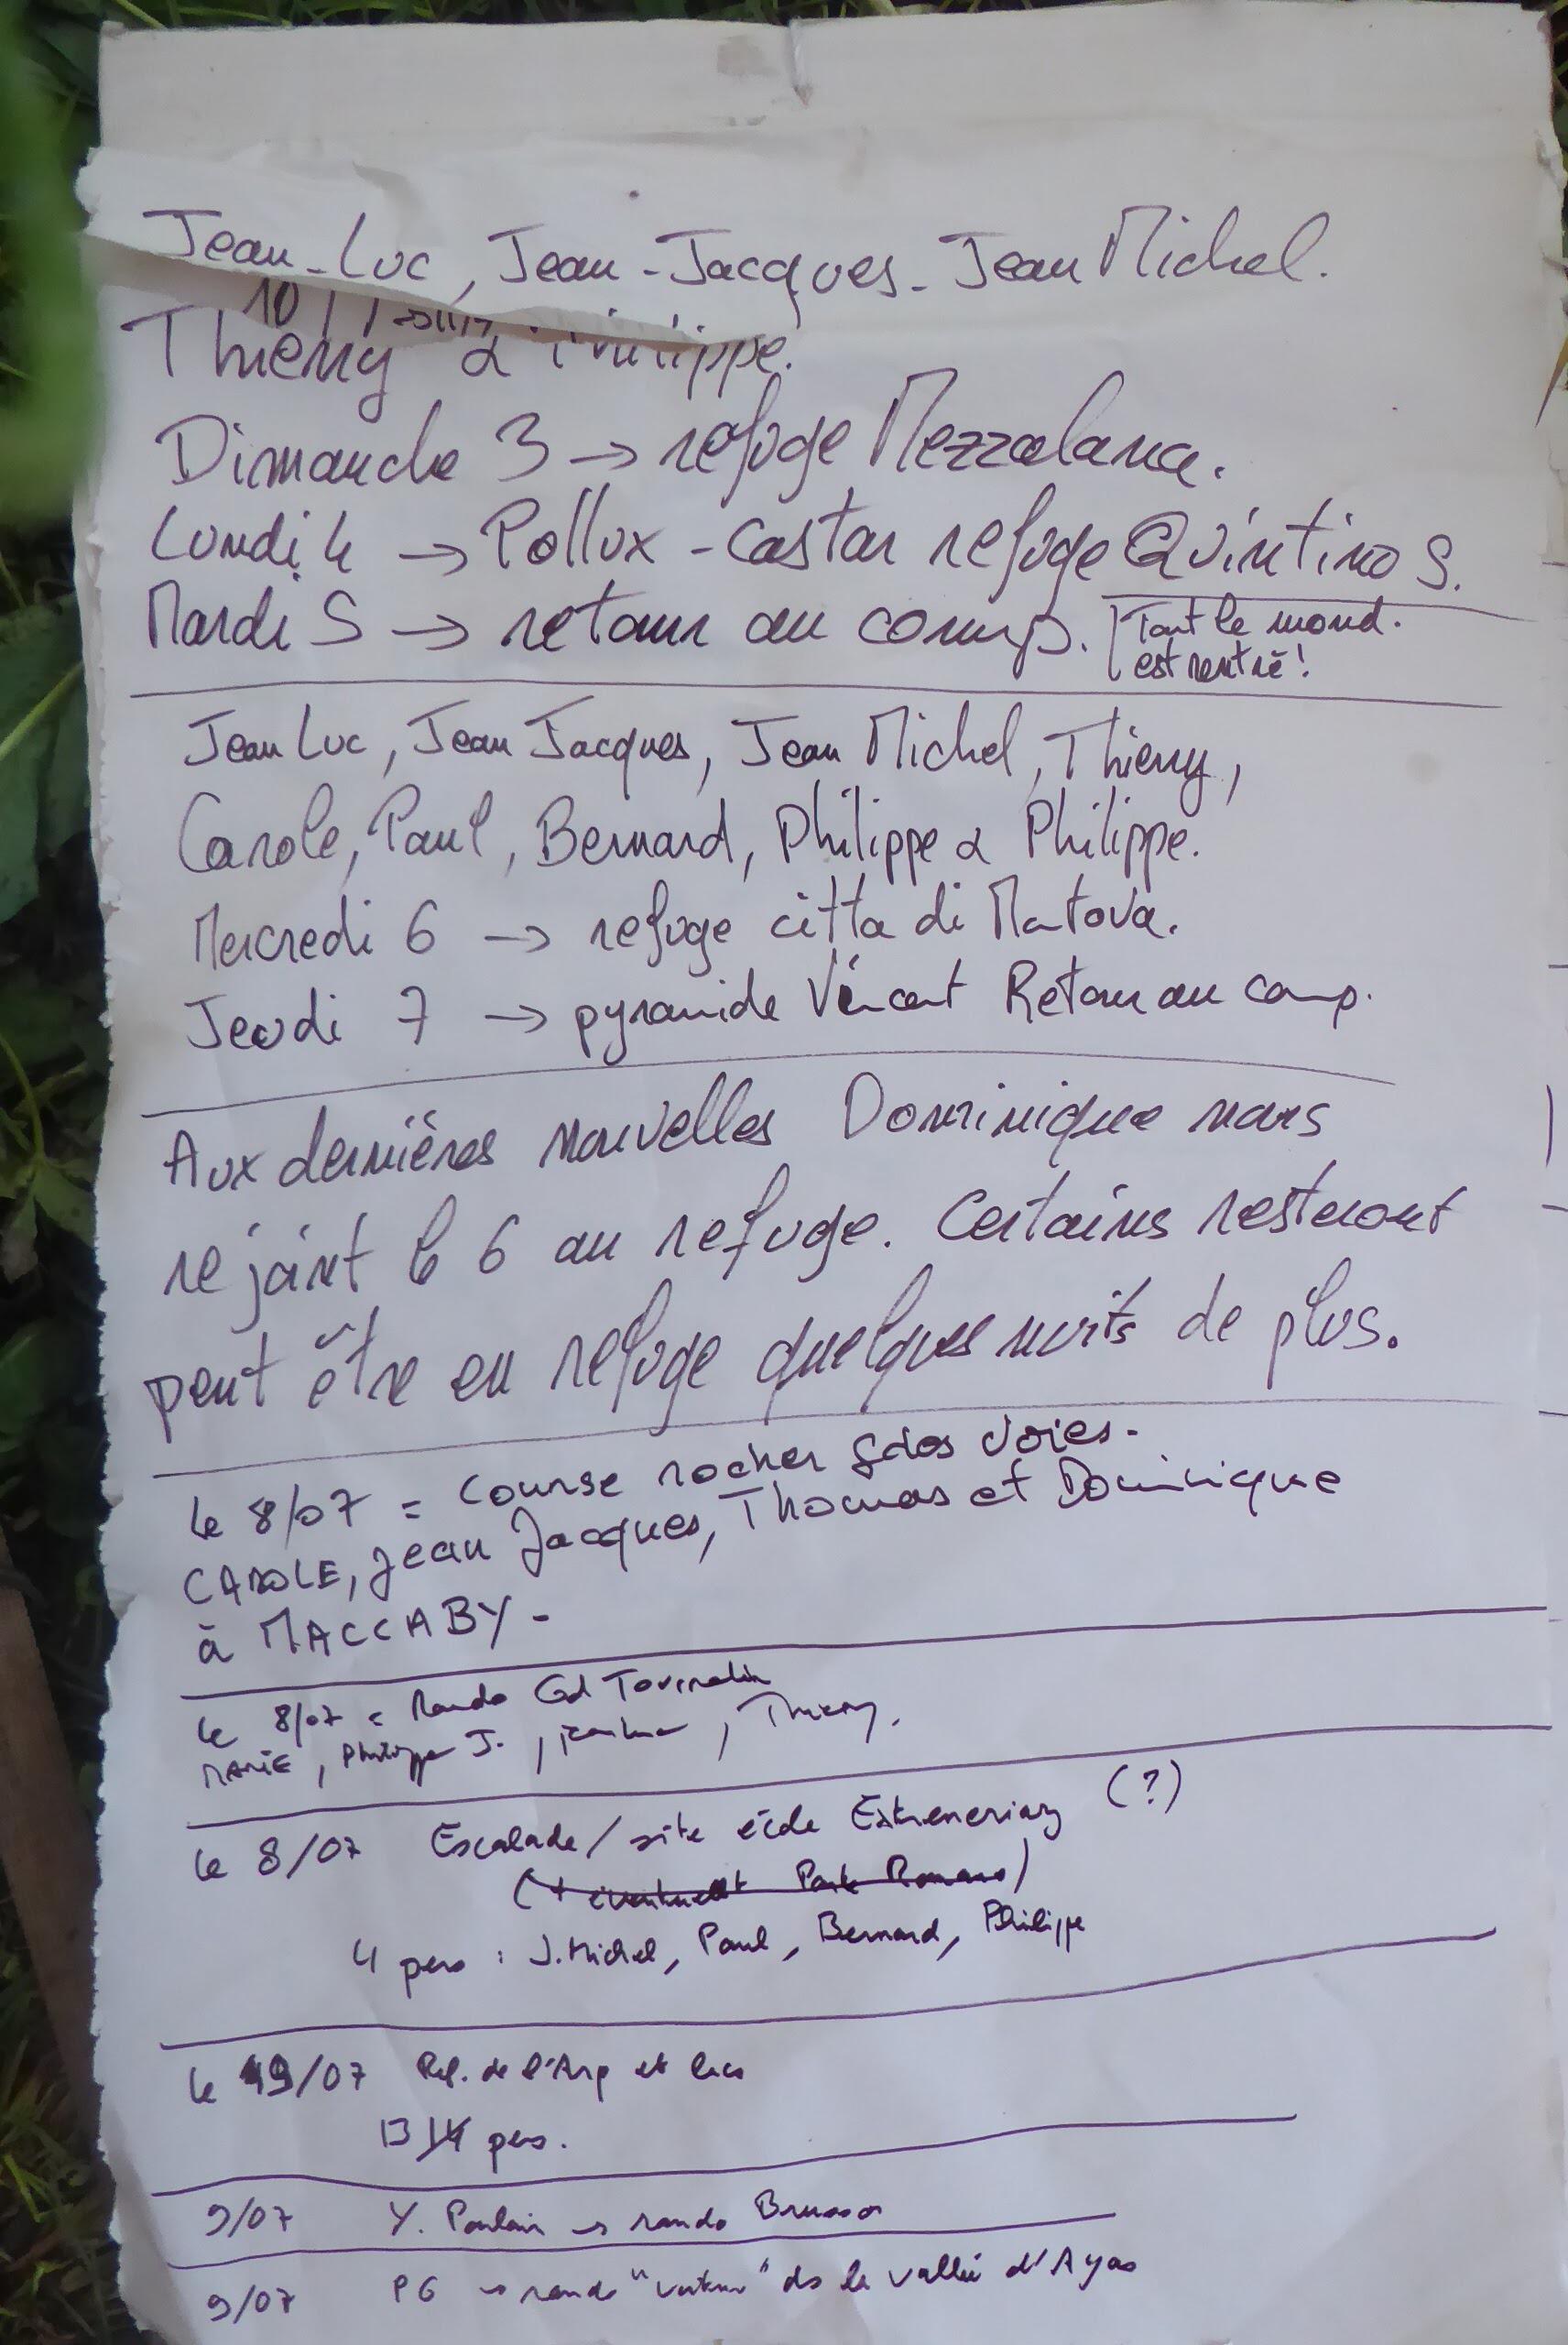 Jean-Luc, Jean-Jacques - Jean Michel.
10
Thierry & Philippe.
Dimanche 3 → refuge Mezzalama.
Lundi 4 → Pollux - Castor refuge Quintino S.
Mardi 5 → retour au camp.
Tout le mond.
est rentré !
Jean Luc, Jean Jacques, Jean Michel, Thierry,
Carole, Paul, Bernard, Philippe & Philippe.
Mercredi 6 → refuge citta di Mantova.
Jeudi 7 → pyramide Vincent Retour au camp.
Aux dernières nouvelles Dominique nous
rejoint le 6 au refuge. Certains resteront
peut être en refuge quelques nuits de plus.
le 8/07 = course rocher gdes voies -
CAROLE, Jean Jacques, Thomas et Dominique
à MACCABY -
le 8/07 = Rando Gd Tournalin
MARIE, Philippe J., Thierry.
le 8/07 Escalade / site école (?)
(+ éventuellt Ponte Romano)
4 pers : J.Michel, Paul, Bernard, Philippe
le 9/07 Ref. de l'Arp et lacs
13 14 pers.
9/07 Y. Poulain → rando Brusson
9/07 PG → rando " " ds la vallée d'Ayas